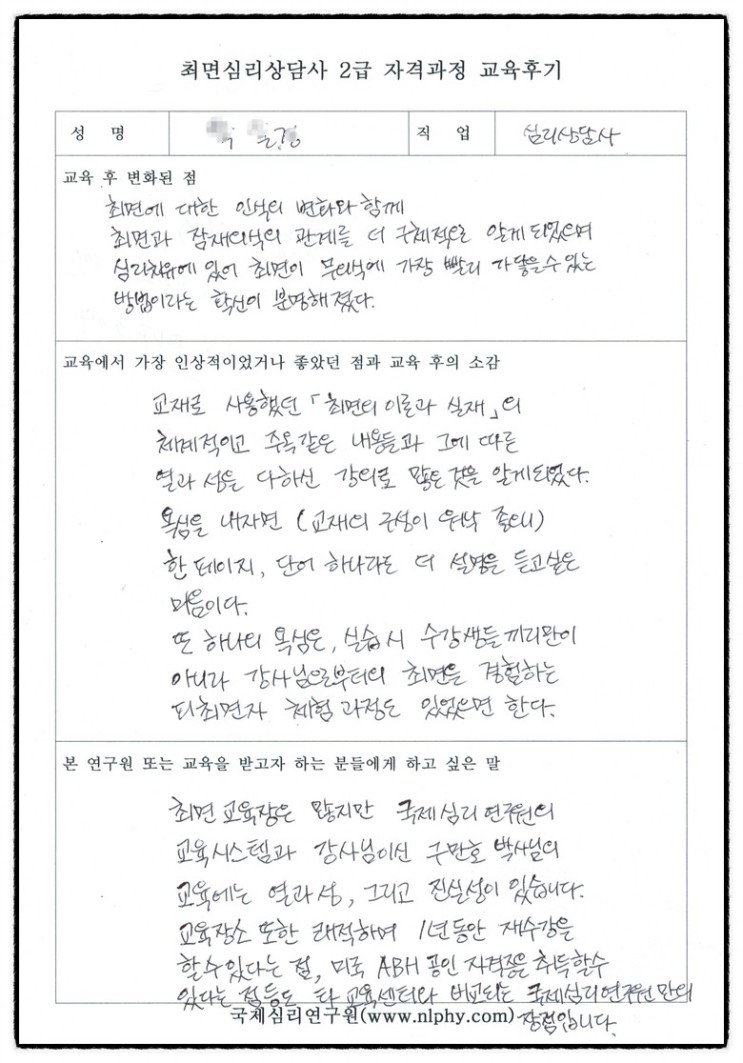 최면심리상담사 2급 자격과정 교육후기
성 명 직 업 심리상담사
교육 후 변화된 점
최면에 대한 인식의 변화와 함께
최면과 잠재의식의 관계를 더 구체적으로 알게 되었으며
심리치유에 있어 최면이 무의식에 가장 빨리 가 닿을 수 있는
방법이라는 확신이 분명해졌다.
교육에서 가장 인상적이었거나 좋았던 점과 교육 후의 소감
교재로 사용했던 「최면의 이론과 실재」의
체계적이고 주옥같은 내용들과 그에 따른
열과 성을 다하신 강의로 많은 것을 알게되었다.
욕심을 내자면 (교재의 구성이 워낙 좋으니)
한 페이지, 단어 하나라도 더 설명을 듣고싶은
마음이다.
또 하나의 욕심은, 실습시 수강생들끼리만이
아니라 강사님으로부터의 최면을 경험하는
피최면자 체험 과정도 있었으면 한다.
본 연구원 또는 교육을 받고자 하는 분들에게 하고 싶은 말
최면 교육장은 많지만 국제심리연구원의
교육시스템과 강사님이신 구만호 박사님의
교육에는 열과 성, 그리고 진실성이 있습니다.
교육장소 또한 쾌적하며 1년동안 재수강을
할 수 있다는 점, 미국 ABH 공인 자격증을 취득할수
있다는 점등도 타 교육센터와 비교되는 국제심리연구원만의
장점입니다.
국제심리연구원(www.nlphy.com)